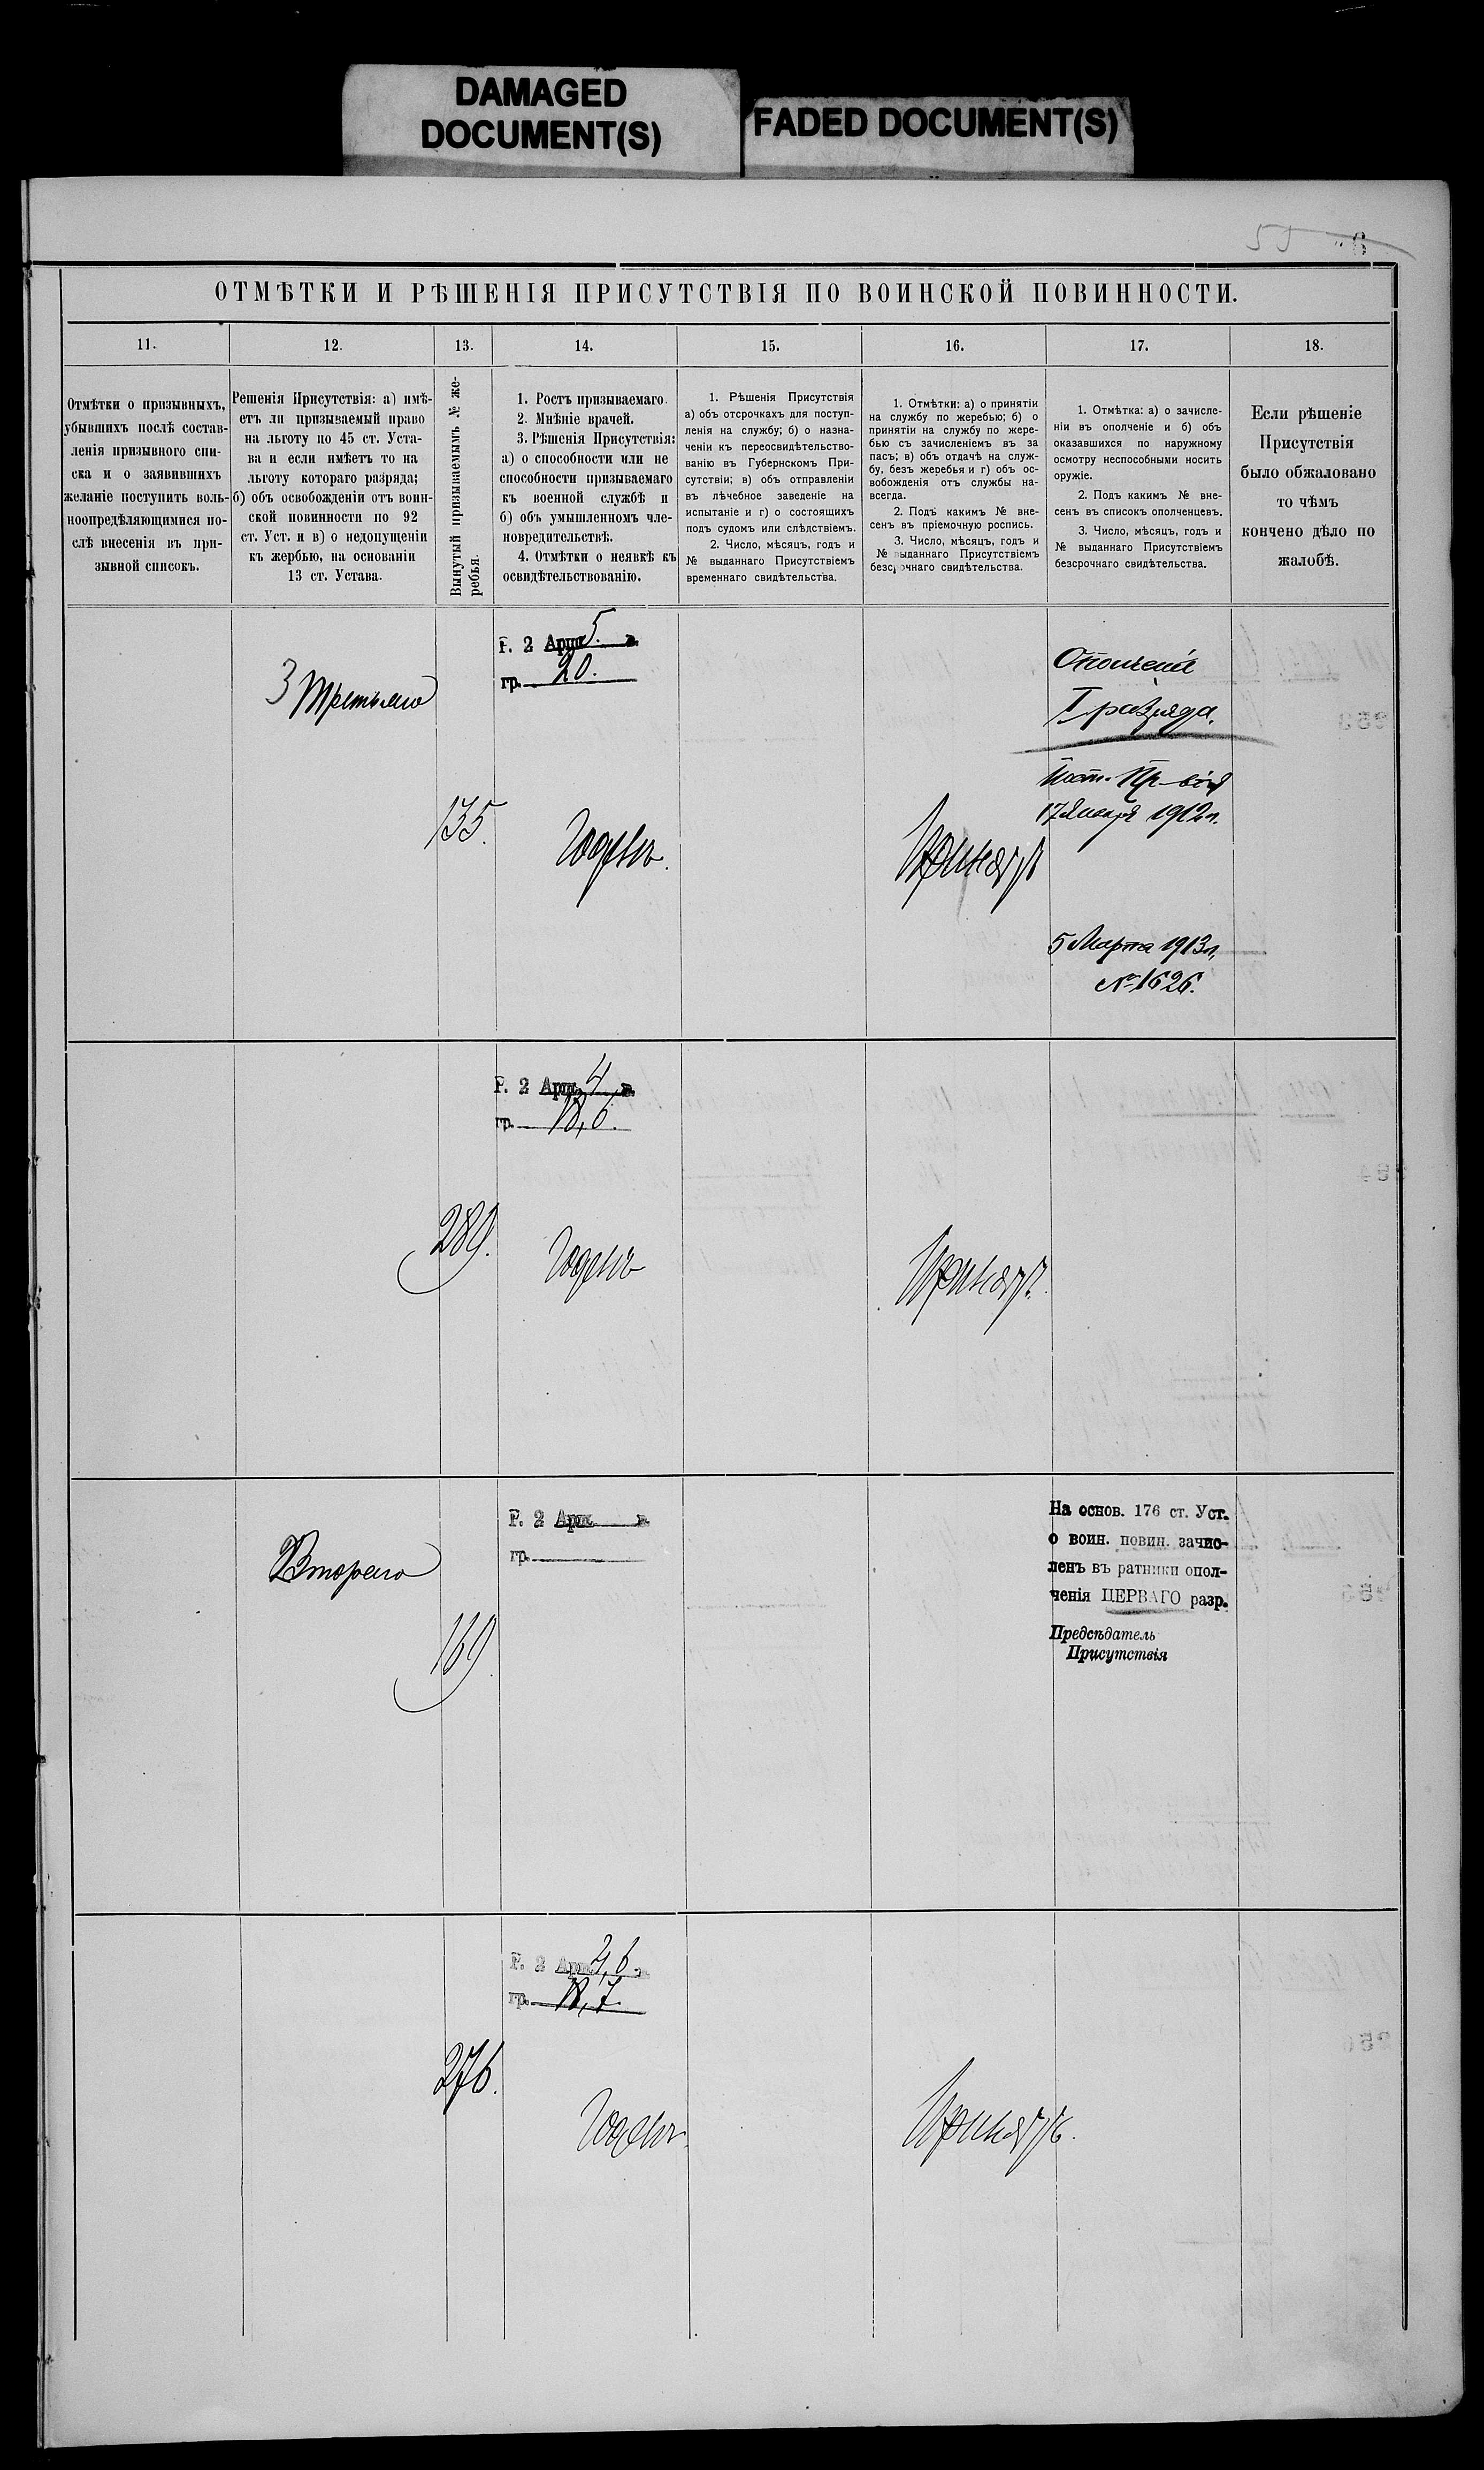 DAMAGED
DOCUMENT(S)
FADED DOCUMENT(S)
55
ОТМѢТКИ И РѢШЕНІЯ ПРИСУТСТВІЯ ПО ВОИНСКОЙ ПОВИННОСТИ.
11.
12.
13.
14.
15.
16.
17.
18.
Отмѣтки о призывныхъ,
убывшихъ послѣ состав-
ленія призывного спи-
ска и о заявившихъ
желаніе поступить воль-
ноопредѣляющимися по-
слѣ внесенія въ при-
зывной списокъ.
Решенія Присутствія: а) имѣ-
етъ ли призываемый право
на льготу по 45 ст. Уста-
ва и если имѣетъ то на
льготу котораго разряда;
б) объ освобожденіи отъ воин-
ской повинности по 92
ст. Уст. и в) о недопущеніи
къ жербью, на основаніи
13 ст. Устава.
Вынутый призываемымъ № же-
ребья.
1. Ростъ призываемаго.
2. Мнѣніе врачей.
3. Рѣшенія Присутствія:
а) о способности или не
способности призываемаго
къ военной службѣ и
б) объ умышленномъ чле-
новредительствѣ.
4. Отмѣтки о неявкѣ къ
освидѣтельствованію.
1. Рѣшенія Присутствія
а) объ отсрочкахъ для поступ-
ленія на службу; б) о назна-
ченіи къ переосвидѣтельство-
ванію въ Губернскомъ При-
сутствіи; в) объ отправленіи
въ лѣчебное заведеніе на
испытаніе и г) о состоящихъ
подъ судомъ или слѣдствіемъ.
2. Число, мѣсяцъ, годъ и
№ выданнаго Присутствіемъ
временнаго свидѣтельства.
1. Отмѣтки: а) о принятіи
на службу по жеребью; б) о
принятіи на службу по жере-
бью съ зачисленіемъ въ за
пасъ; в) объ отдачѣ на служ-
бу, безъ жеребья и г) объ ос-
вобожденія отъ службы на-
всегда.
2. Подъ какимъ № вне-
сенъ въ пріемочную роспись.
3. Число, мѣсяцъ, годъ и
№ выданнаго Присутствіемъ
безсрочнаго свидѣтельства.
1. Отмѣтка: а) о зачисле-
ніи въ ополченіе и б) объ
оказавшихся по наружному
осмотру неспособными носить
оружіе.
2. Подъ какимъ № вне-
сенъ въ списокъ ополченцевъ.
3. Число, мѣсяцъ, годъ и
№ выданнаго Присутствіемъ
безсрочнаго свидѣтельства.
Если рѣшеніе
Присутствія
было обжаловано
то чѣмъ
кончено дѣло по
жалобѣ.
3 Третьяго
135.
Р. 2 Арш. 5. в.
гр. 20.
Годенъ.
Принятъ
Ополченія
I разряда.
Пост. Пр-вія
17 Января 1912 г.
5 Марта 1913 г.
№ 1626.
289.
Р. 2 Арш. 4 в.
гр. 18,6.
Годенъ
Принятъ.
Второго
169.
Р. 2 Арш. в.
гр.
На основ. 176 ст. Уст.
о воин. повин. зачис-
ленъ въ ратники опол-
ченія ПЕРВАГО разр.
Предсѣдатель
Присутствія
276.
Р. 2 Арш. 4,6. в.
гр. 18,7.
Годенъ.
Принятъ.